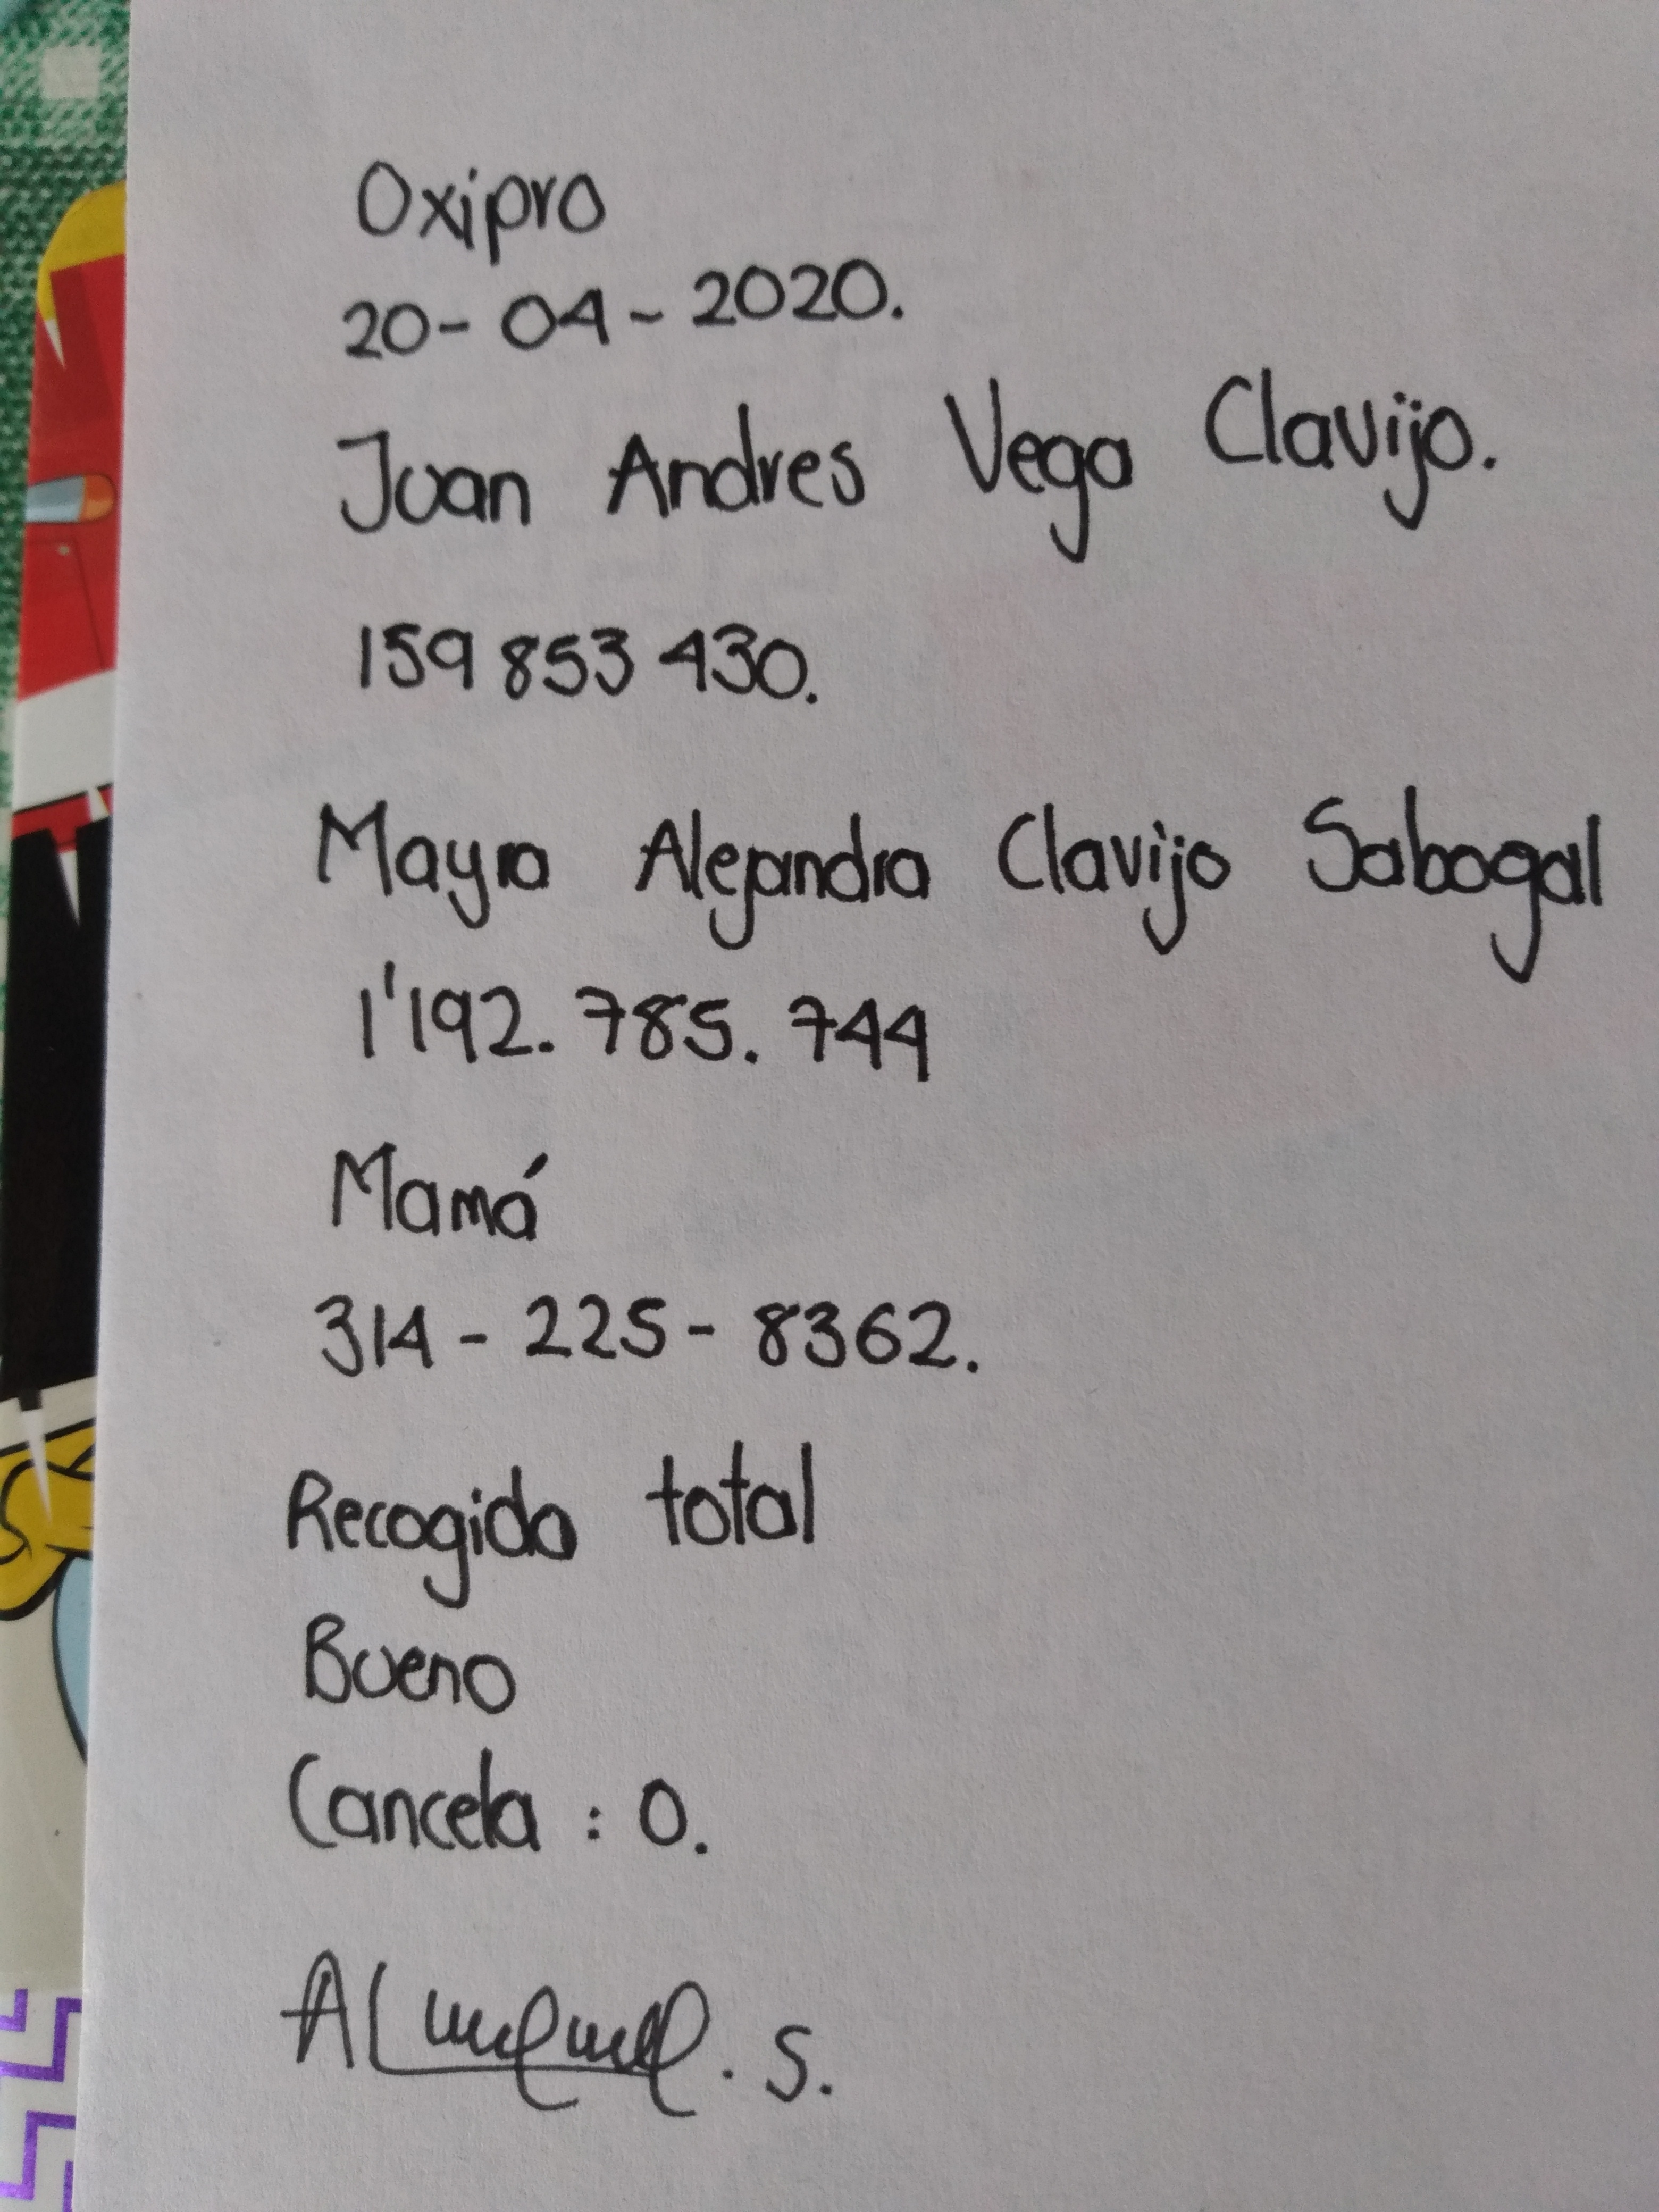 Oxipro
20-04-2020.
Juan Andres Vega Clavijo.
159 853 430.
Mayra Alejandra Clavijo Sabogal
1'192.785.744
Mamá
314-225-8362.
Recogida total
Bueno
Cancela : 0.
S.